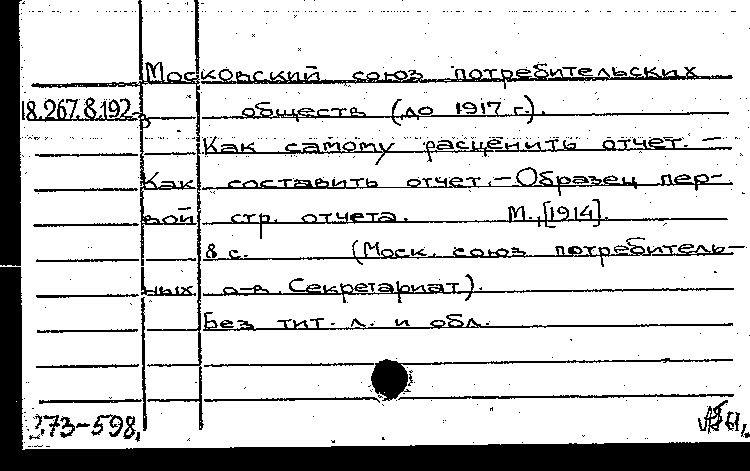 Московский союз потребительских
18.267.8.192-
обществ (до 1917 г.).
Как самому расценить отчет. –
Как составить отчет. – Образец пер-
вой стр. отчета. М., [1914].
8 с. (Моск. союз потребитель-
ных о-в. Секретариат).
Без тит. л. и обл.
373-598,